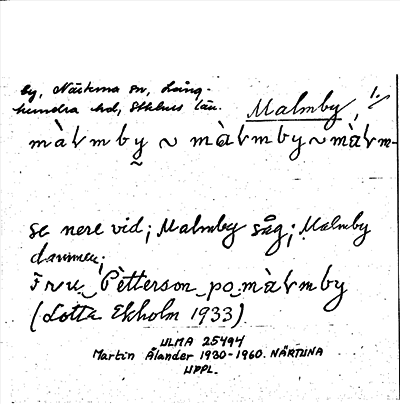 by, Närtuna sn, Lång-
hundra hd, Sthlms län.
Malmby, 1.
màɭmby̰ ~ màɭmby ~ màɭm-
se nere vid; Malmby såg; Malmby
dammen;
Fru Pètterson po màɭmby
(Lotta Ekholm 1933)
ULMA 25494
Martin Ålander 1930-1960. NÄRTUNA
UPPL.